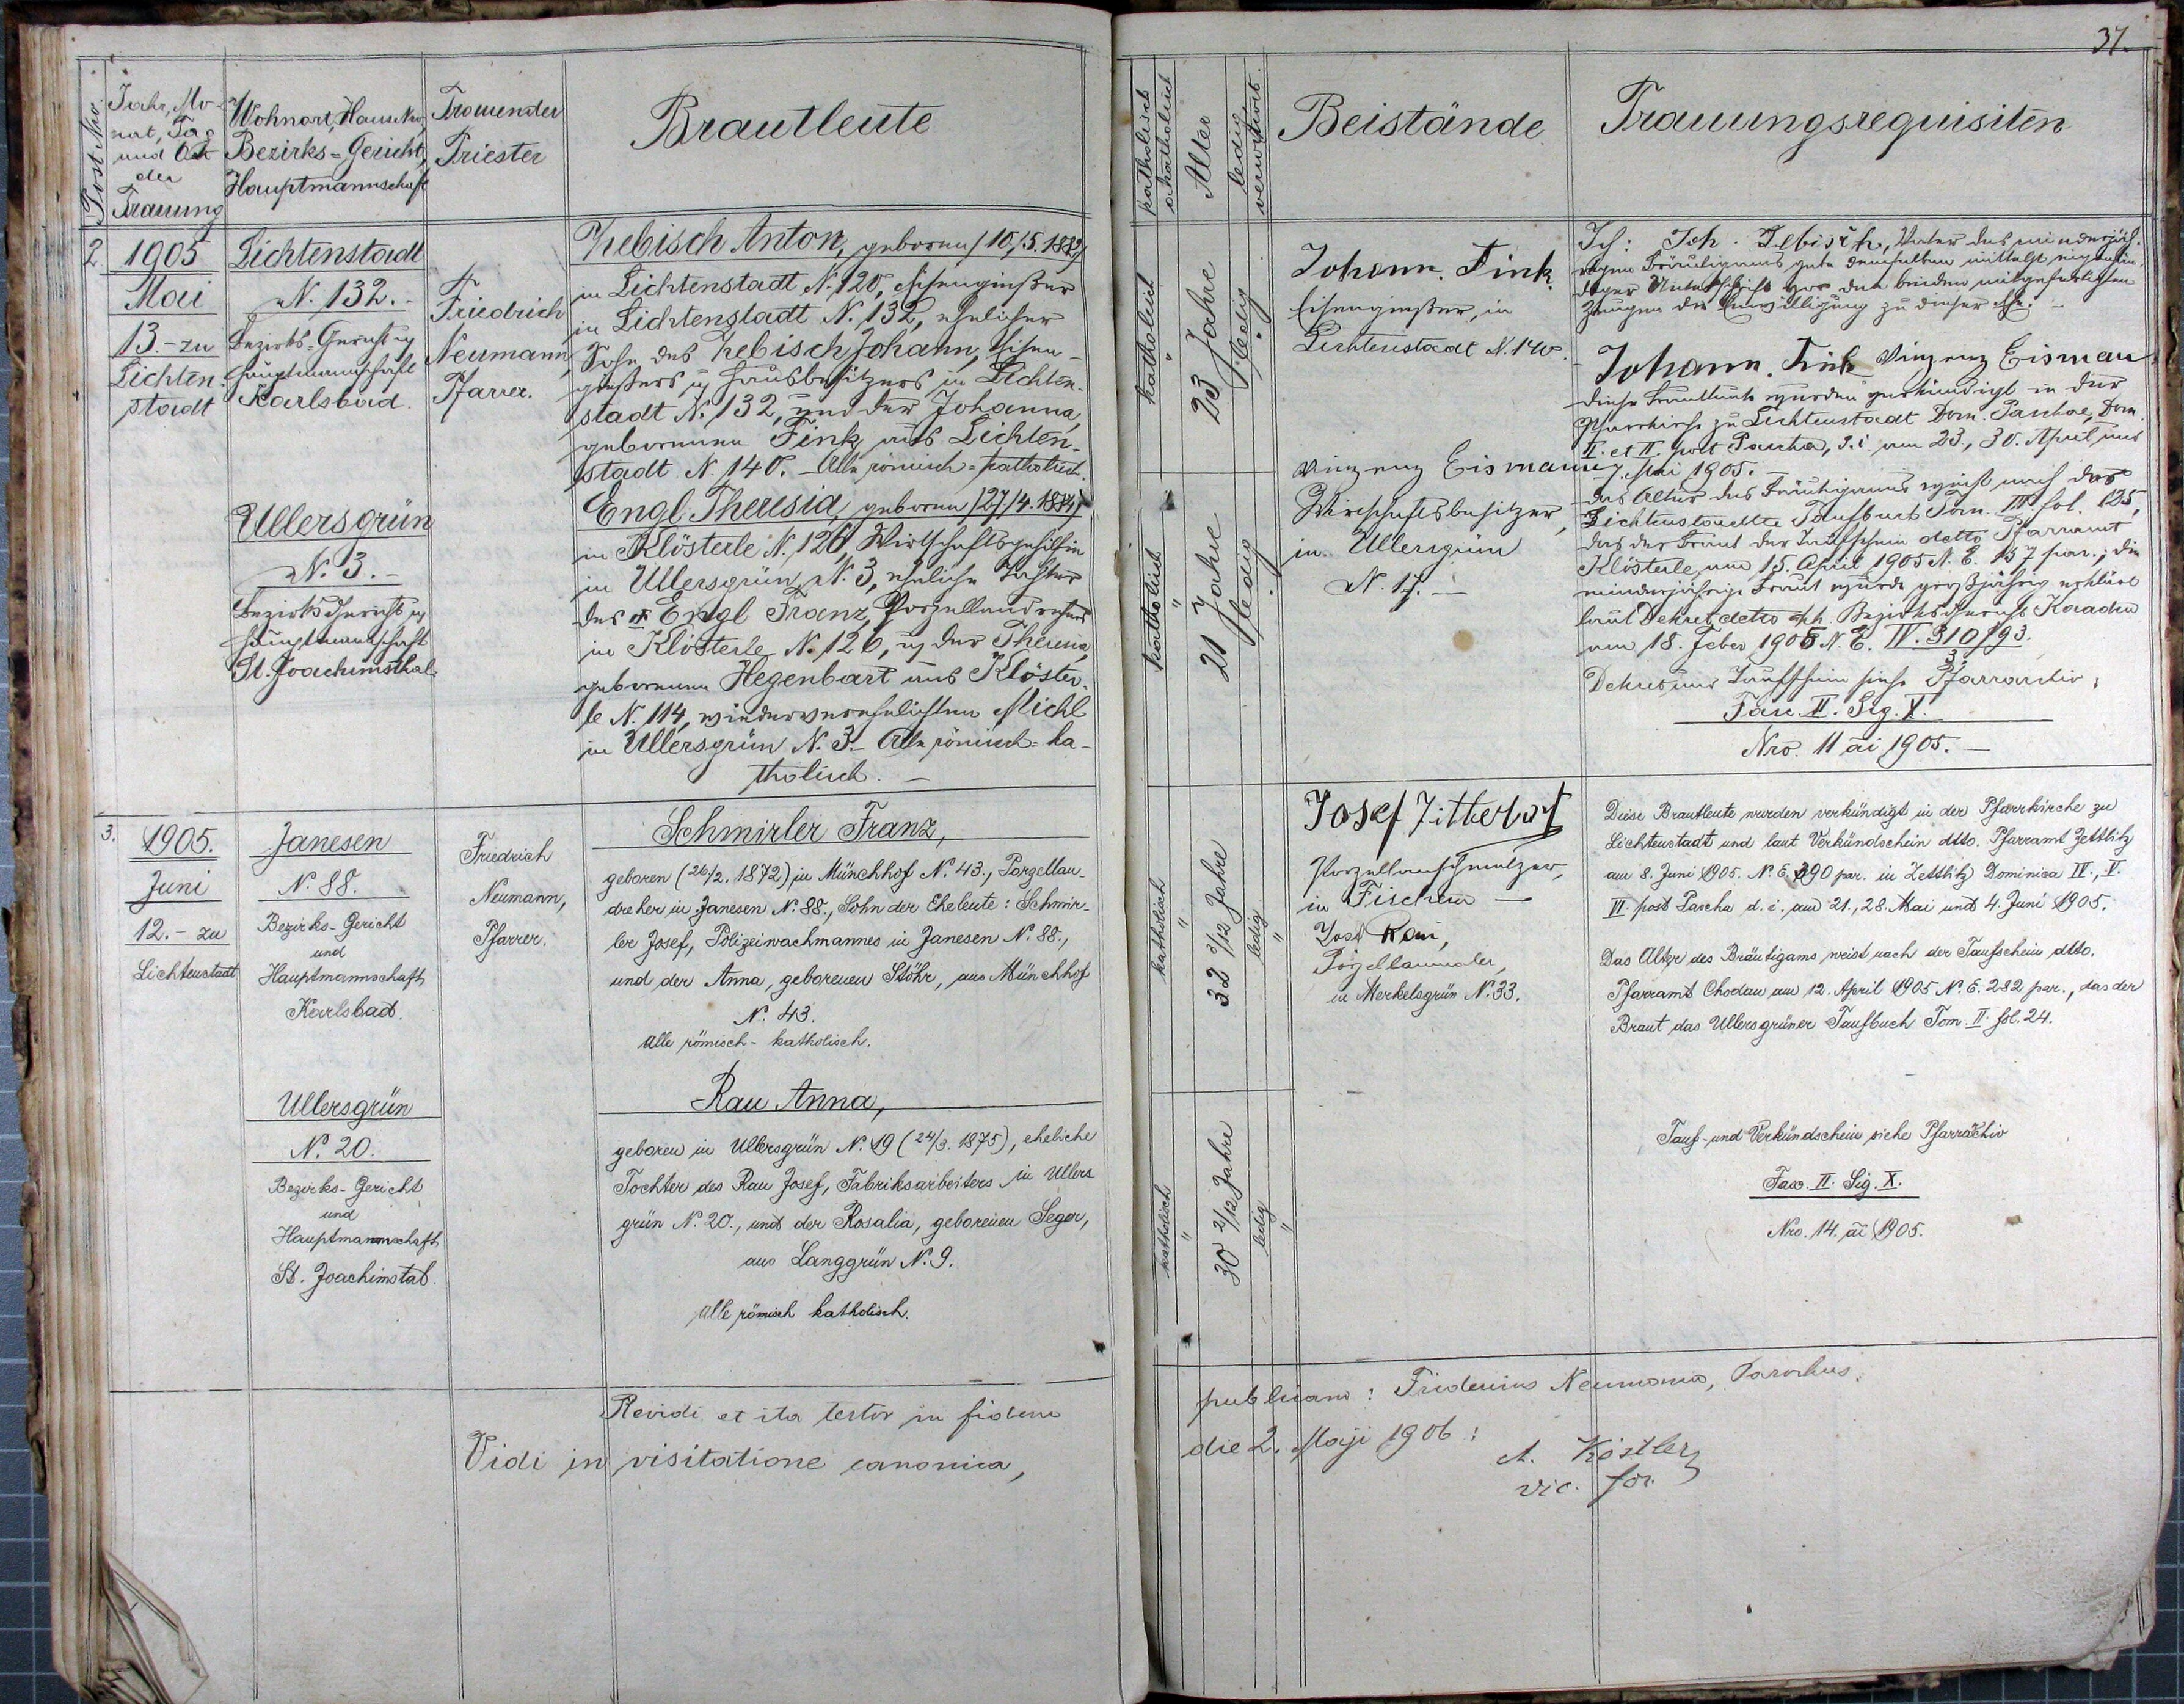 37.
Post Nro.
Jahr, Mo-
nat, Tag
und Ort
der
Trauung
Wohnort, Haus No,
Bezirks=Gericht,
Hauptmannschaft
Trauender
Priester
Brautleute
katholisch
akatholisch
Alter
ledig
verwitwet.
Beistände
Trauungsrequisiten
2
1905
Mai
13.- zu
Lichten-
stadt
Lichtenstadt
N. 132.-
Bezirks=Gericht u
Hauptmannschaft
Karlsbad.
Friedrich
Neumann,
Pfarrer.
Hebisch Anton, geboren (10./5. 1882)
in Lichtenstadt N. 120, Eisengießer
in Lichtenstadt N. 132, ehelicher
Sohn des Hebisch Johann, Eisen-
gießers u Hausbesitzers in Lichten-
stadt N. 132, und der Johanna,
geborenen Fink aus Lichten-
stadt N. 140. Alle römisch=katholisch.
Ullersgrün
N. 3.-
Bezirks Gericht u
Hauptmannschaft
St. Joachimsthal.
Engl Theresia, geboren (27/4. 1884)
in Klösterle N. 126, Wirtschaftsgehilfin
in Ullersgrün N. 3, eheliche Tochter
des † Engl Franz, Porzellandrehers
in Klösterle N. 126, u der Theresia,
geborenen Hegenbart aus Klöster-
le N. 114, wiederverehelichten Michl
in Ullersgrün N. 3.- Alle römisch=ka-
tholisch. -
katholisch
"
23 Jahre
ledig
"
Johann. Fink.
Eisengießer, in
Lichtenstadt N. 140.
Ich: Joh. Hebisch, Vater des minderjäh-
rigen Bräutigams gebe demselben mittelst eigenhän-
diger Unterschrift vor den beiden mitgefertigten
Zeugen die Einwilligung zu dieser Ehe. -
Johann. Fink Vinzenz Eisman
katholisch
"
21 Jahre
ledig
"
Vinzenz Eismann
Wirtschaftsbesitzer,
in Ullersgrün
N. 17. -
Diese Brautleute wurden verkündigt in der
Pfarrkirche zu Lichtenstadt Dom. Paschae, Dom.
I. et II. post Pascha, d.i. am 23., 30. April und
7. Mai 1905. -
Das Alter des Bräutigams weist nach das
Lichtenstadter Taufbuch Tom. III fol. 125,
das der Braut der Taufschein detto Pfarramt
Klösterle am 15. April 1905 N. E. 157 par.; die
minderjährige Braut wurde großjährig erklärt
laut Dekret detto kk. Bezirksgericht Kaaden
am 18. Feber 1905 N. E. IV. 310/93.
3
Dekret und Taufschein siehe Pfarrarchiv,
Fasc. II. Sig. X.
Nro. 11 ai 1905. -
3.
1905.
Juni
12.- zu
Lichtenstadt
Janesen
N. 88.
Bezirks-Gericht
und
Hauptmannschaft
Karlsbad.
Friedrich
Neumann,
Pfarrer.
Schmirler Franz,
geboren (26/2. 1872) in Münchhof N. 43., Porzellan-
dreher in Janesen N. 88., Sohn der Eheleute: Schmir-
ler Josef, Polizeiwachmannes in Janesen N. 88.,
und der Anna, geborenen Stöhr, aus Münchhof
N. 43.
alle römisch-katholisch.
Ullersgrün
N. 20.
Bezirks-Gericht
und
Hauptmannschaft
St. Joachimstal.
Rau Anna,
geboren in Ullersgrün N. 19 (24/3. 1875), eheliche
Tochter des Rau Josef, Fabriksarbeiters in Ullers
grün N. 20., und der Rosalia, geborenen Seger,
aus Langgrün N. 9.
alle römisch katholisch.
katholisch
"
32 3/12 Jahre
ledig
"
Josef Zitterbart
Porzellanschmelzer,
in Fischern -
Josef Rau,
Porzellanmaler,
in Merkelsgrün N. 33.
katholisch
"
30 2/12 Jahre
ledig
"
Diese Brautleute wurden verkündigt in der Pfarrkirche zu
Lichtenstadt und laut Verkündschein dtto. Pfarramt Zettlitz
am 8. Juni 1905. N. E. 390 par. in Zettlitz Dominica IV., V.
VI. post Pascha d. i. am 21., 28. Mai und 4. Juni 1905.
Das Alter des Bräutigams weist nach der Taufschein dtto.
Pfarramt Chodau am 12. April 1905 N. E. 282 par., das der
Braut das Ullersgrüner Taufbuch Tom. II. fol. 24.
Tauf- und Verkündschein siehe Pfarrachiv
Fasc. II. Sig. X.
Nro. 14. ai 1905.
Revidi et ita testor in fidem publicam: Fridericus Neumann, Parochus.
Vidi in visitatione canonica, die 2. Maji 1906:
A. Köstler
vic. for.